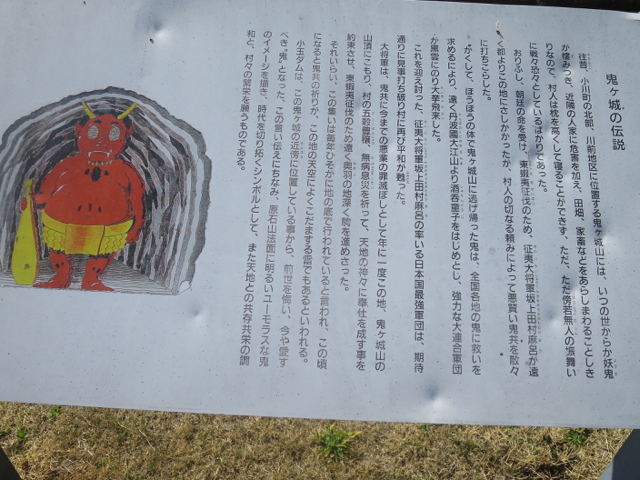 鬼ヶ城の伝説
往昔、小川町の北部、川前地区に位置する鬼ヶ城山には、いつの世からか妖鬼
が棲みつき、近隣の人家に危害を加え、田畑、家畜などをあらしまわることしき
りなので、村人は枕を高くして寝ることができず、ただ、ただ傍若無人の振舞い
に戦々恐々としているばかりであった。
おりふし、朝廷の命を受け、東蝦夷征伐のため、征夷大将軍坂上田村麻呂が遠
く都よりこの地にさしかかったが、村人の切なる頼みによって悪賢い鬼共を散々
に打ちこらした。
かくして、ほうほうの体で鬼ヶ城山に逃げ帰った鬼は、全国各地の鬼に救いを
求めるにより、遠く丹波國大江山より酒呑童子をはじめとし、強力な大連合軍団
が黒雲にのり大挙飛来した。
これを迎え討った、征夷大将軍坂上田村麻呂の率いる日本国最強軍団は、期待
通りに見事打ち破り村に再び平和が甦った。
大将軍は、鬼共に今までの悪業の罪滅ぼしとして年に一度この地、鬼ヶ城山の
山頂にこもり、村の五穀豊穣、無病息災を祈って、天地の神々に奉仕を成す事を
約束させ、東蝦夷征伐のため遠く奥羽の地深く駒を進めさった。
それいらい、この集いは毎年ひそかに地の底で行われていると言われ、この頃
になると鬼共の祈りが、この地の天空によくこだまする雷でもあるといわれる。
小玉ダムは、この鬼ヶ城の近傍に位置している事から、前世を悔い、今や愛す
べき“鬼”となった、この言い伝えにちなみ、原石山法面に明るいユーモラスな鬼
のイメージを描き、時代を切り拓くシンボルとして、また天地との共存共栄の調
和と、村々の繁栄を願うものである。